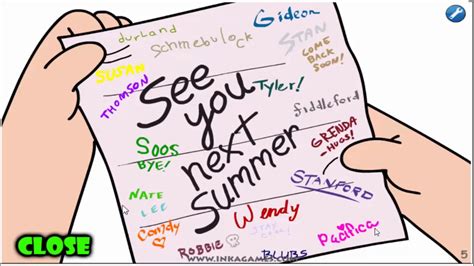 Gideon
durland
Schmebulock
STAN
COME
BACK
SOON!
SUSAN
THOMSON
See
you
next
summer
Tyler!
fiddleford
Soos
BYE!
GRENDA
-HUGS!
STANFORD
NATE
LEE
Candy
Wendy
STAY
COOL!
Pacifica
ROBBIE
BLUBS
CLOSE
WWW.INKAGAMES.COM
5